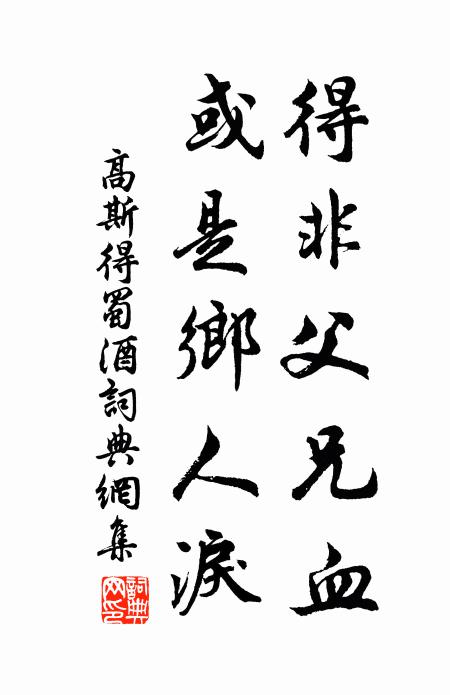 得非父兄血
或是鄉人淚
高斯得蜀酒詞典網集
詞典網印